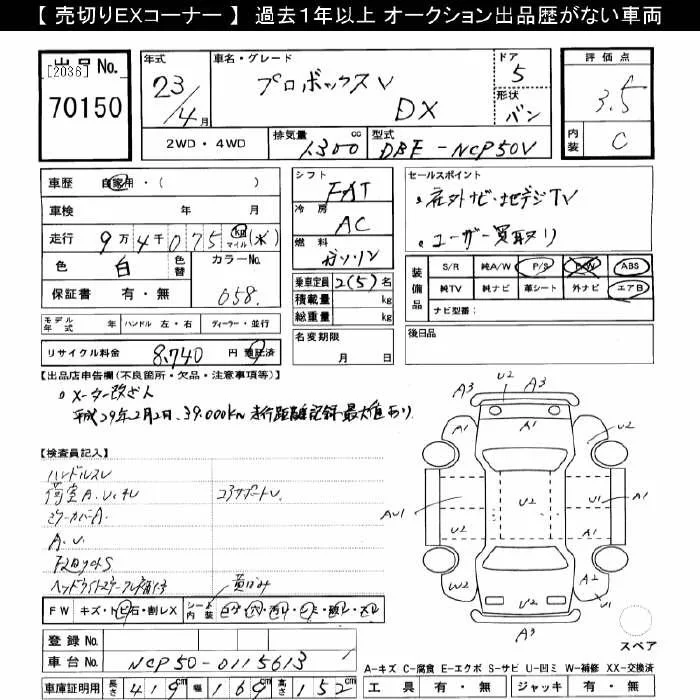 【 売切りEXコーナー 】 過去１年以上 オークション出品歴がない車両
出品 No.
[2036]
70150
年式
23/4月
車名・グレード
プロボックスV
DX
ドア
5
形状
バン
評価点
3.5
内装
C
2WD・4WD
排気量
1300 cc
型式
DBE-NCP50V
車歴 自家用・( )
車検 年 月
走行 9万4千075 km マイル (水)
色 白 色替 カラーNo. 058
保証書 有・無
シフト
FAT
冷房
AC
燃料
ガソリン
乗車定員 2(5)名
積載量 kg
総重量 kg
名変期限
月 日
セールスポイント
・社外ナビ・地デジTV
・ユーザー買取り
装備品
S/R 純A/W P/S P/W ABS
純TV 純ナビ 革シート 外ナビ エアB
ナビ型番:
後日品
モデル年式 年 ハンドル 左・右 ディーラー・並行
リサイクル料金 8,740 円 預託済
【出品店申告欄(不良箇所・欠品・注意事項等)】
メーター改ざん
平成29年2月2日、39,000km 走行距離記録最大値あり
【検査員記入】
ハンドルスレ
荷室A.U.キレ
コアサポートU.
ミラーカバーA.
A.U.
下回りC.S
FW キズ・トビ石・割レX
シート内装
登録 No.
車台 No. NCP50-0115613
車庫証明用 長さ 419cm 幅 169cm 高さ 152cm
A3 U2 A3
A1
A1
U2
AU1
U2
U1
A1
U2
A2
W2
U2
U1
A3
スペア
A-キズ C-腐食 E-エクボ S-サビ U-凹ミ W-補修 XX-交換済
工具 有・無 ジャッキ 有・無